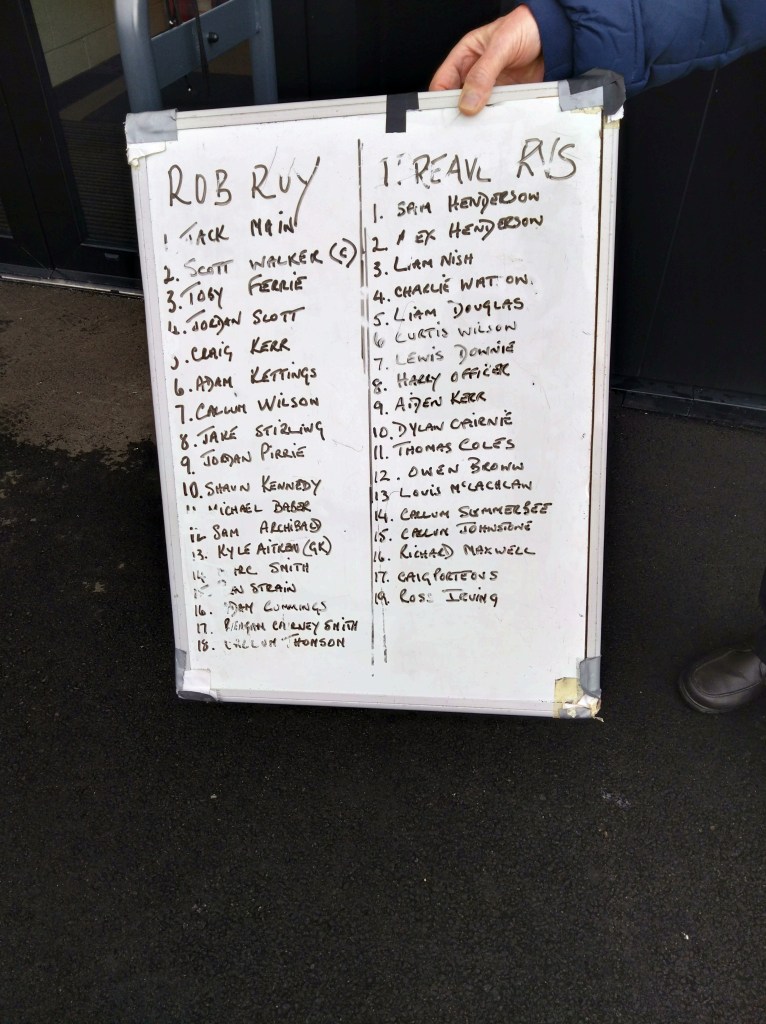 ROB ROY
1 JACK MAIN
2. SCOTT WALKER (C)
3. TOBY FERRIE
4. JORDAN SCOTT
5. CRAIG KERR
6. ADAM KETTINGS
7. CALLUM WILSON
8. JAKE STIRLING
9. JORDAN PIRRIE
10. SHAUN KENNEDY
11 MICHAEL BABER
12 SAM ARCHIBALD
13. KYLE AITKEN (GK)
14 SMITH
15 STRAIN
16. CUMMINGS
17. REAGAN CAIRNEY SMITH
18. CALLUM THOMSON
RVS
1. SAM HENDERSON
2. A EX HENDERSON
3. LIAM NISH
4. CHARLIE WAT ON.
5. LIAM DOUGLAS
6 CURTIS WILSON
7. LEWIS DOWNIE
8. HARRY OFFICER
9. AIDEN KERR
10. DYLAN CAIRNIE
11. THOMAS COLES
12. OWEN BROWN
13 LOUIS MCLACHLAN
14. CALLUM SUMMERBEE
15. CALLUM JOHNSTONE
16. RICHARD MAXWELL
17. CAIG PORTEOUS
19. ROSS IRVING